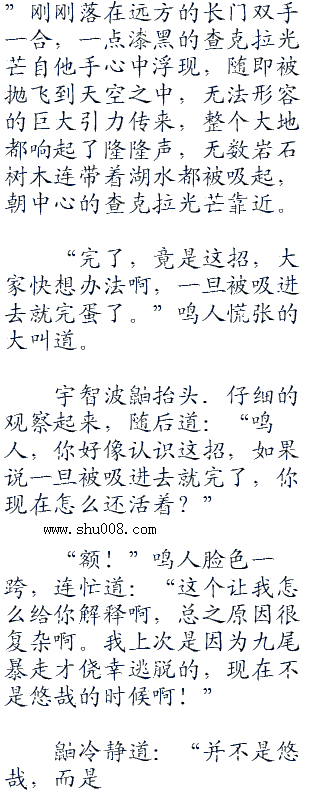 ”刚刚落在远方的长门双手
一合，一点漆黑的查克拉光
芒自他手心中浮现，随即被
抛飞到天空之中，无法形容
的巨大引力传来，整个大地
都响起了隆隆声，无数岩石
树木连带着湖水都被吸起，
朝中心的查克拉光芒靠近。
“完了，竟是这招，大
家快想办法啊，一旦被吸进
去就完蛋了。”鸣人慌张的
大叫道。
宇智波鼬抬头．仔细的
观察起来，随后道：“鸣
人，你好像认识这招，如果
说一旦被吸进去就完了，你
现在怎么还活着？”
www.shu008.com
“额！”鸣人脸色一
跨，连忙道：“这个让我怎
么给你解释啊，总之原因很
复杂啊。我上次是因为九尾
暴走才侥幸逃脱的，现在不
是悠哉的时候啊！”
鼬冷静道：“并不是悠
哉，而是